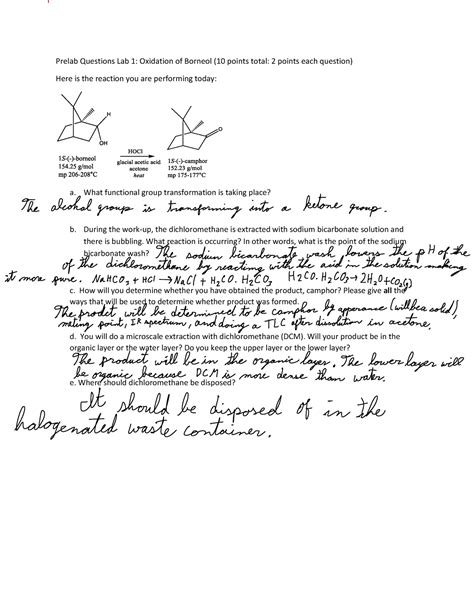 Prelab Questions Lab 1: Oxidation of Borneol (10 points total: 2 points each question)
Here is the reaction you are performing today:
H
OH
O
HOCl
glacial acetic acid
acetone
heat
1S-(-)-borneol
154.25 g/mol
mp 206-208°C
1S-(-)-camphor
152.23 g/mol
mp 175-177°C
a. What functional group transformation is taking place?
The alcohol group is transforming into a ketone group.
b. During the work-up, the dichloromethane is extracted with sodium bicarbonate solution and
there is bubbling. What reaction is occurring? In other words, what is the point of the sodium
bicarbonate wash? The sodium bicarbonate wash lowers the pH of the
of the dichloromethane by reacting with the acid in the solution making
it more pure. NaHCO3 + HCl → NaCl + H2CO3. H2CO3 → H2O + CO2(g)
c. How will you determine whether you have obtained the product, camphor? Please give all the
ways that will be used to determine whether product was formed.
The prodct will be determined to be camphor by apperance (will be a solid),
melting point, IR spectrum, and doing a TLC after dissolution in acetone.
d. You will do a microscale extraction with dichloromethane (DCM). Will your product be in the
organic layer or the water layer? Do you keep the upper layer or the lower layer?
The product will be in the organic layer. The lower layer will
be organic because DCM is more dense than water.
e. Where should dichloromethane be disposed?
It should be disposed of in the
halogenated waste container.